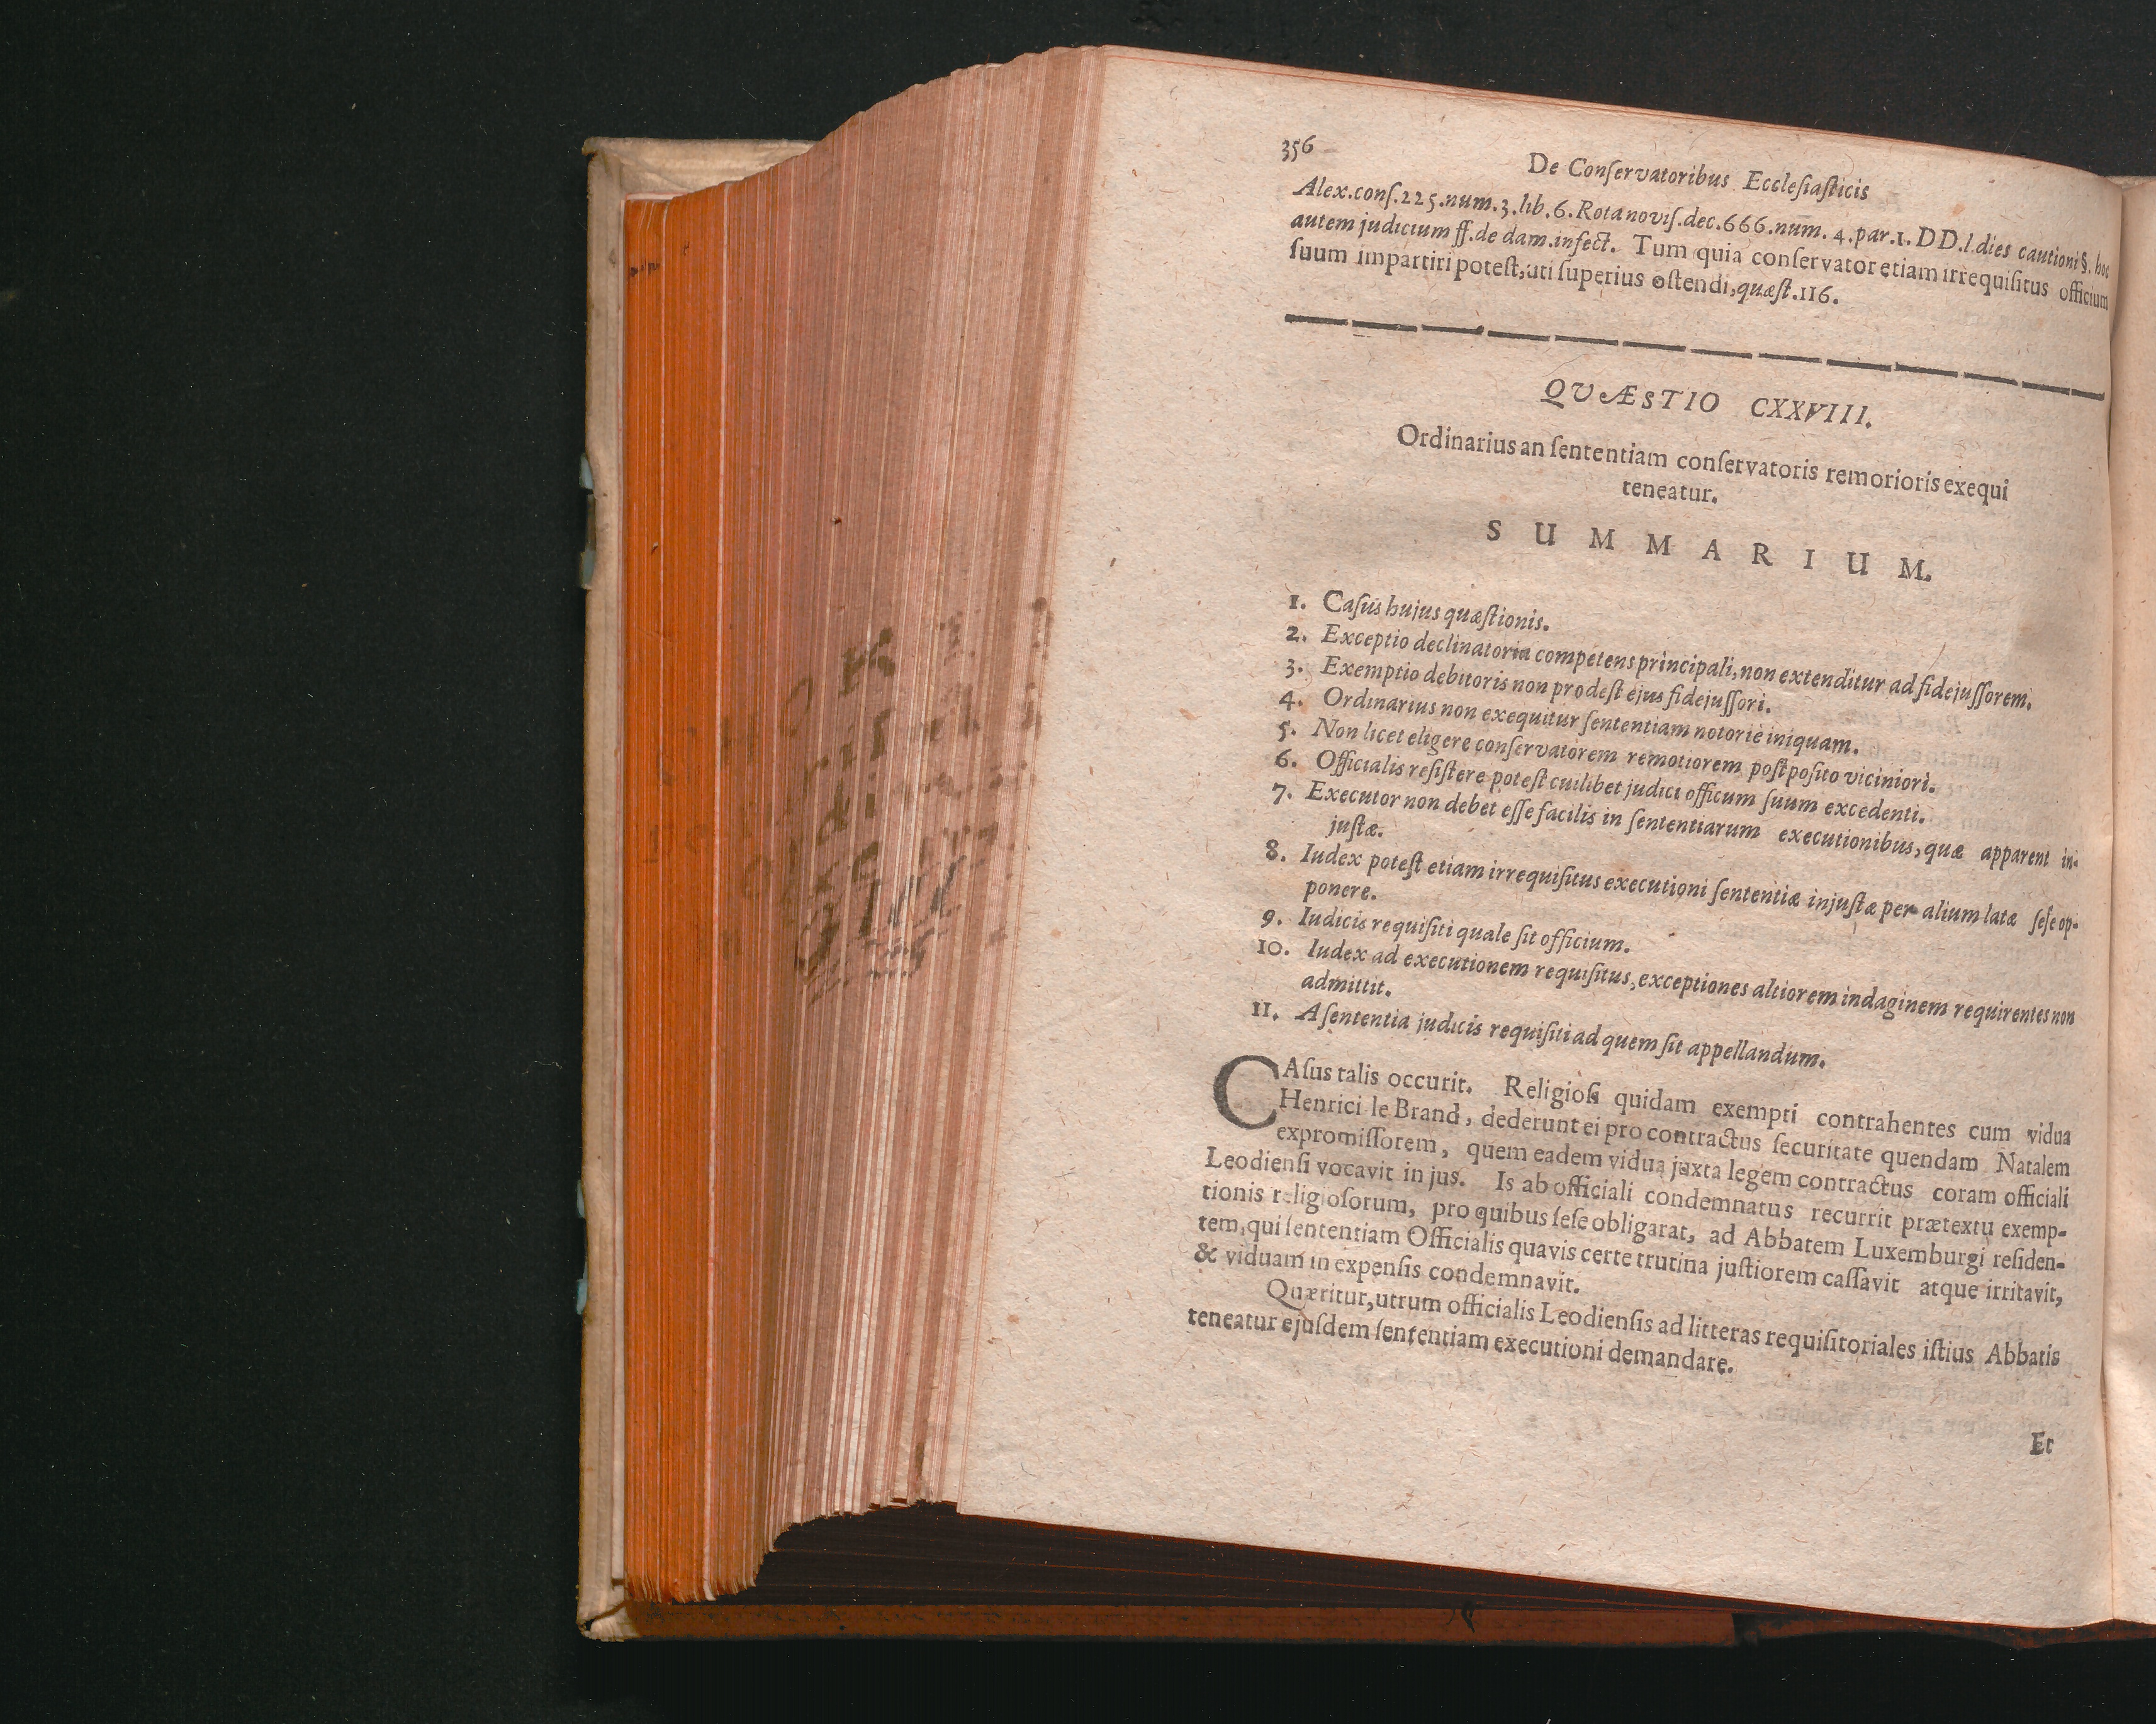 356
De Conſervatoribus Eccleſiaſticis
Alex.conſ.225.num.3.lib.6.Rota noviſ.dec.666.num.4.par.1.DD.l.dies cautioni §. hoc
autem judicium ff.de dam.infect. Tum quia conſervator etiam irrequiſitus officium
ſuum impartiri poteſt,uti ſuperius oſtendi,quæſt.116.
QVÆSTIO CXXVIII.
Ordinarius an ſententiam conſervatoris remorioris exequi
teneatur.
SUMMARIUM.
1. Caſus hujus quæſtionis.
2. Exceptio declinatoria competens principali,non extenditur ad fidejuſſorem.
3. Exemptio debitoris non prodeſt ejus fidejuſſori.
4. Ordinarius non exequitur ſententiam notoriè iniquam.
5. Non licet eligere conſervatorem remotiorem poſtpoſito viciniori.
6. Officialis reſiſtere poteſt cuilibet judici officum ſuum excedenti.
7. Executor non debet eſſe facilis in ſententiarum executionibus,quæ apparent in-
juſtæ.
8. Iudex poteſt etiam irrequiſitus executioni ſententiæ injuſtæ per alium latæ ſeſe op-
ponere.
9. Iudicis requiſiti quale ſit officium.
10. Iudex ad executionem requiſitus,exceptiones altiorem indaginem requirentes non
admittit.
11. A ſententia judicis requiſiti ad quem ſit appellandum.
CAſus talis occurit. Religioſi quidam exempti contrahentes cum vidua
Henrici le Brand, dederunt ei pro contractus ſecuritate quendam Natalem
expromiſſorem, quem eadem vidua juxta legem contractus coram officiali
Leodienſi vocavit in jus. Is ab officiali condemnatus recurrit prætextu exemp-
tionis religioſorum, pro quibus ſeſe obligarat, ad Abbatem Luxemburgi reſiden-
tem,qui ſententiam Officialis quavis certe trutina juſtiorem caſſavit atque irritavit,
& viduam in expenſis condemnavit.
Quæritur,utrum officialis Leodienſis ad litteras requiſitoriales iſtius Abbatis
teneatur ejuſdem ſententiam executioni demandare.
Et